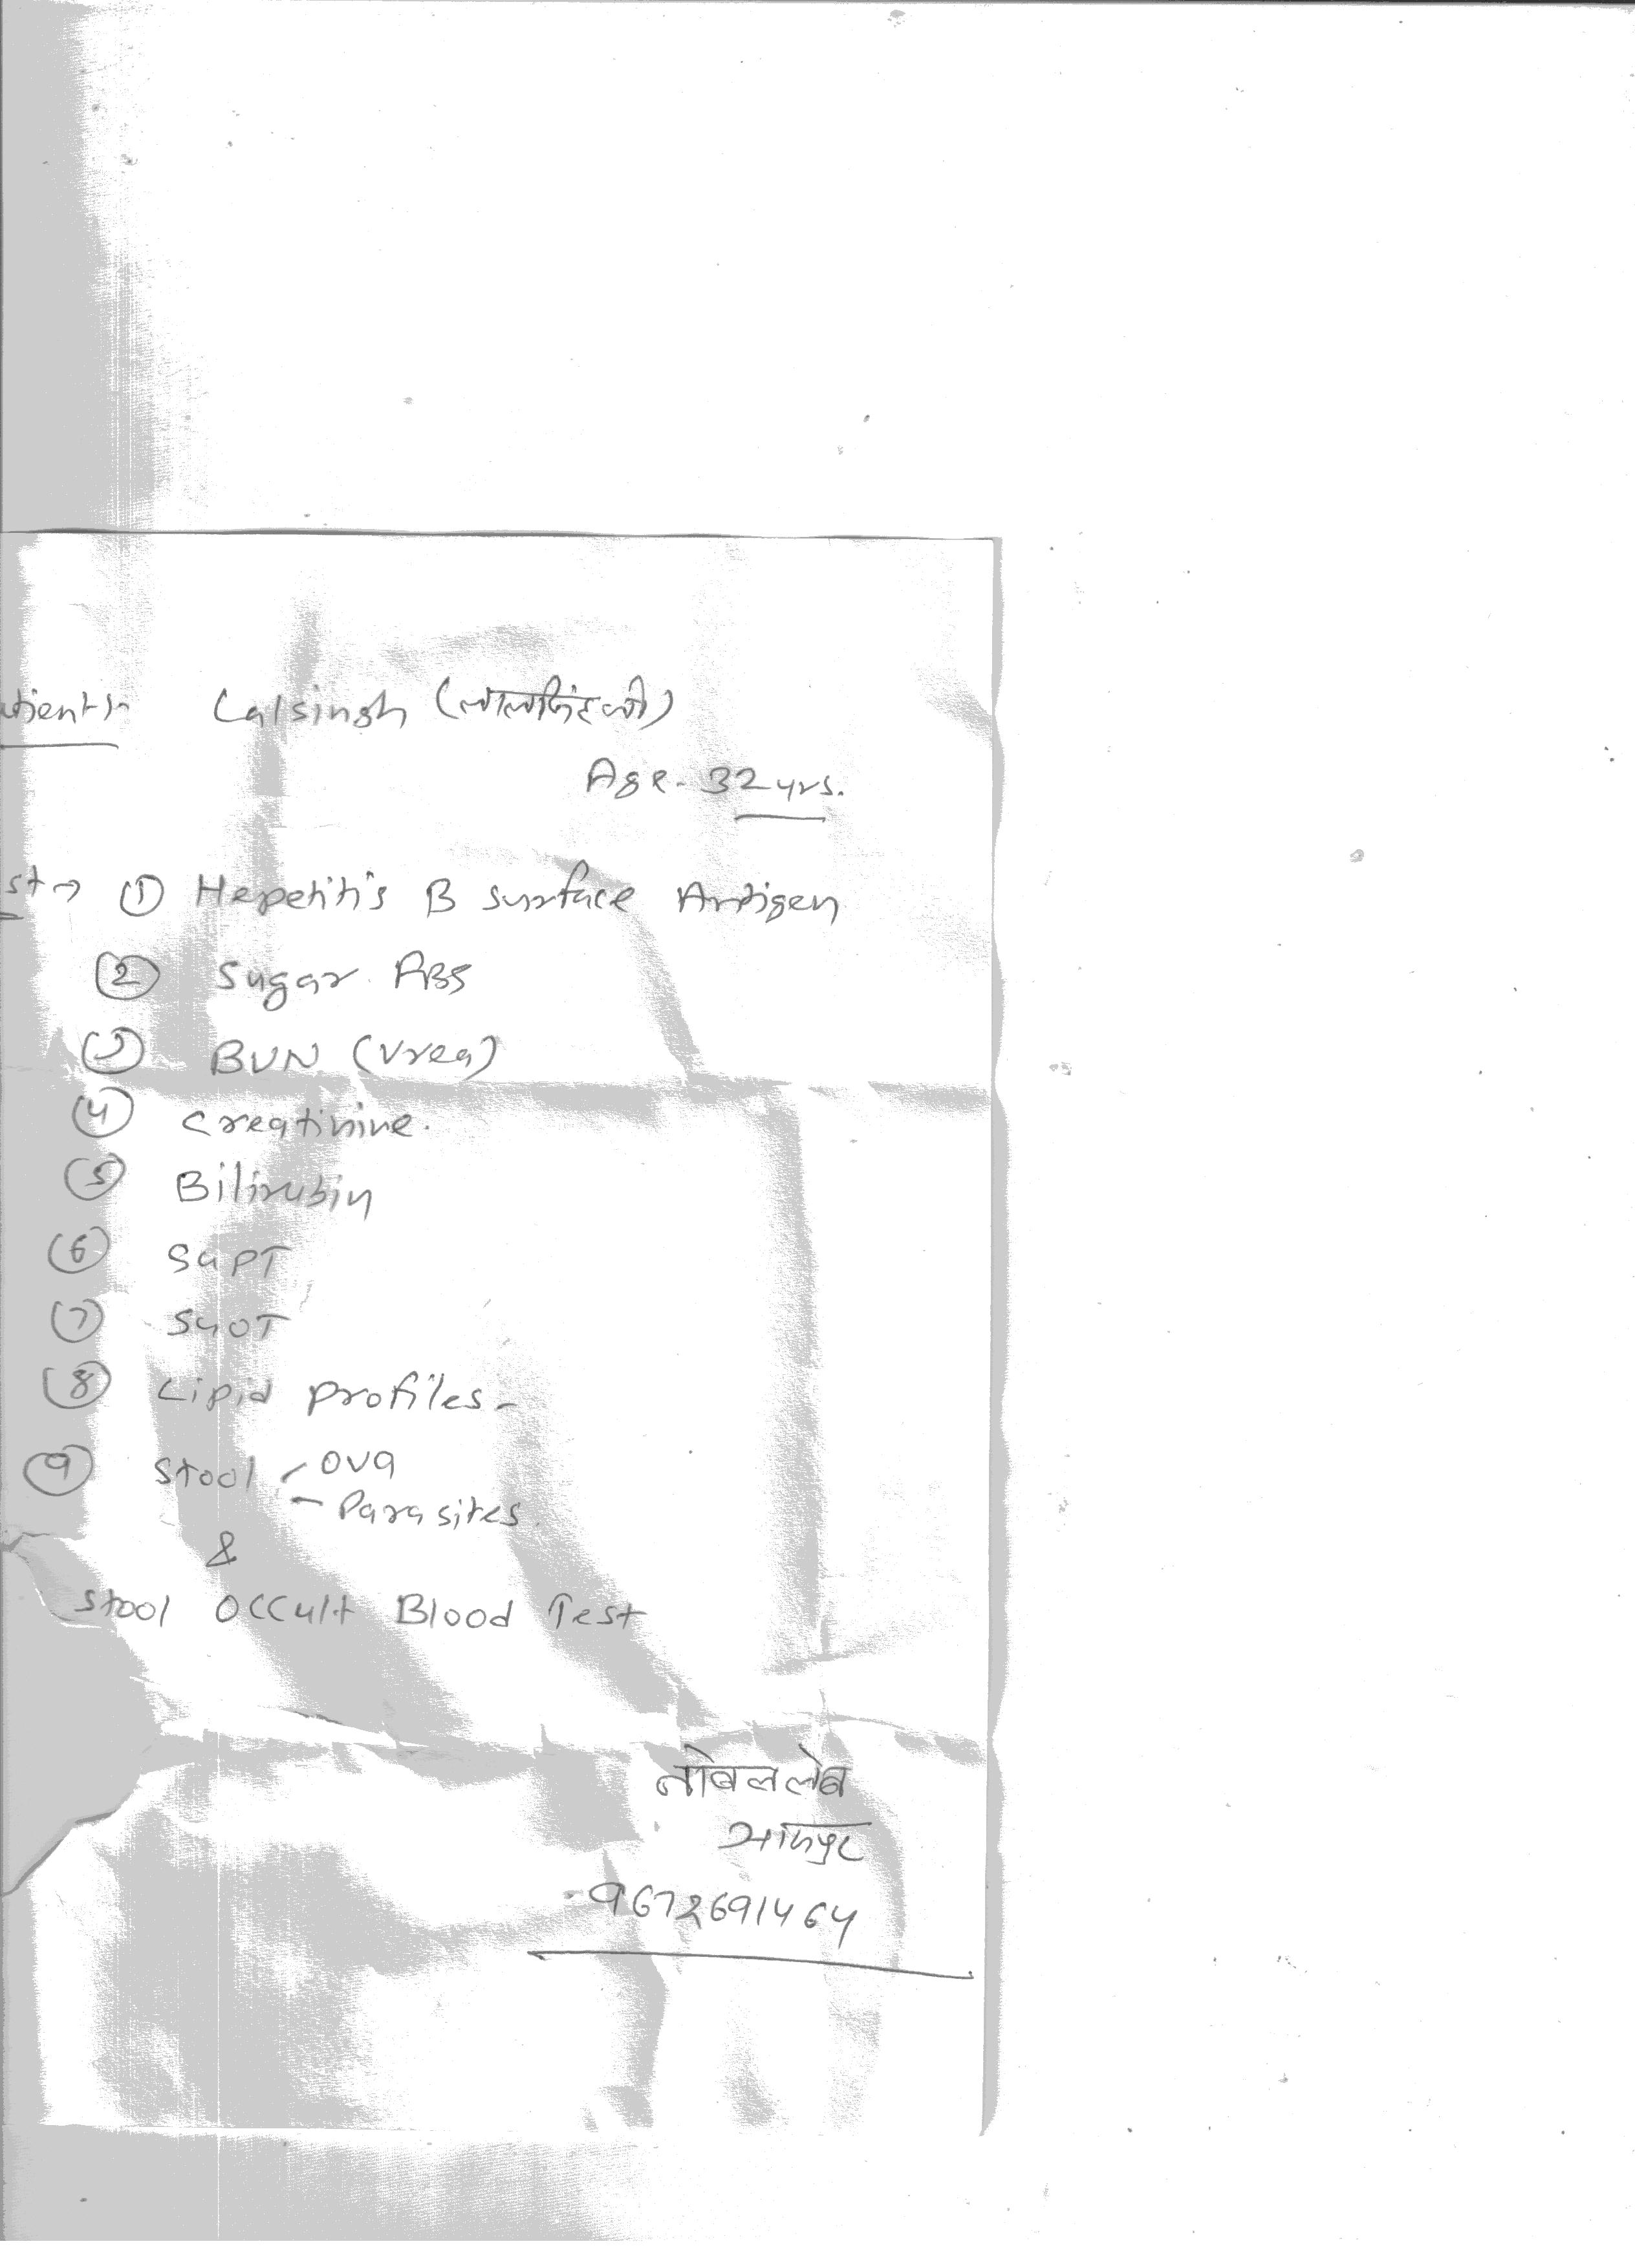 atient:- Lalsingh (लालसिंहजी)
Age- 32 yrs.
st → ① Hepetitis B surface Antigen
② Sugar RBS
③ BUN (Urea)
④ Creatinine.
⑤ Bilirubin
⑥ SGPT
⑦ SGOT
⑧ Lipid profiles-
⑨ Stool - Ova
- Parasites.
&
Stool Occult Blood Test
नोबल लेब
9672691464